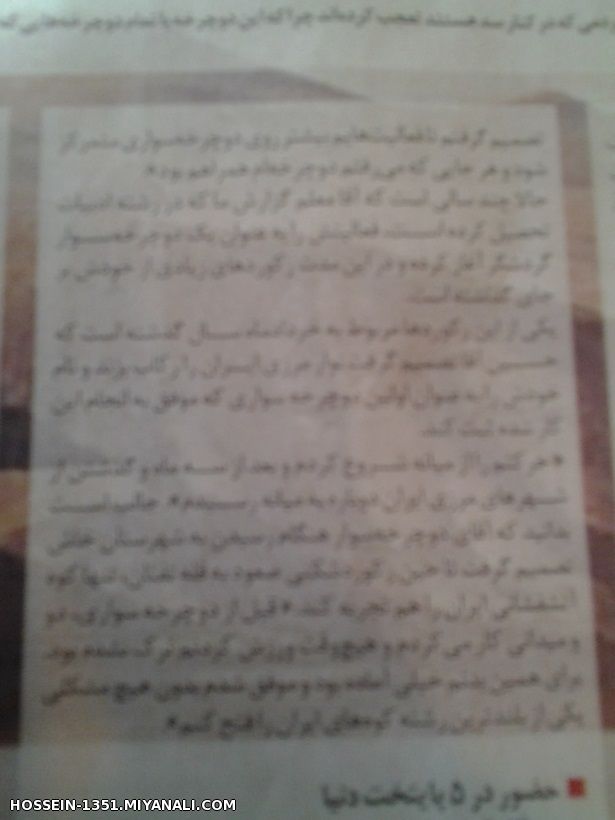 می که در کنار سد هستند تعجب کرده‌اند چرا که این دوچرخه با تمام دوچرخه‌هایی که
تصمیم گرفتم تا فعالیت‌هایم بیشتر روی دوچرخه‌سواری متمرکز
شود و هر جایی که می‌رفتم دوچرخه‌ام همراهم بود».
حالا چند سالی است که آقا معلم گزارش ما که در رشته ادبیات
تحصیل کرده است، فعالیتش را به عنوان یک دوچرخه‌سوار
گردشگر آغاز کرده و در این مدت رکوردهای زیادی از خودش بر
جای گذاشته است.
یکی از این رکوردها مربوط به خردادماه سال گذشته است که
حسین آقا تصمیم گرفت نوار مرزی ایران را رکاب بزند و نام
خودش را به عنوان اولین دوچرخه سواری که موفق به انجام این
کار شده ثبت کند.
«حرکتم را از میانه شروع کردم و بعد از سه ماه و گذشتن از
شهرهای مرزی ایران دوباره به میانه رسیدم». جالب است
بدانید که آقای دوچرخه‌سوار هنگام رسیدن به شهرستان خاش
تصمیم گرفت تا حین رکوردشکنی صعود به قله تفتان، تنها کوه
آتشفشانی ایران را هم تجربه کند. «قبل از دوچرخه سواری، دو
و میدانی کار می کردم و هیچ‌وقت ورزش کردنم ترک نشده بود.
برای همین بدنم خیلی آماده بود و موفق شدم بدون هیچ مشکلی
یکی از بلندترین رشته کوه‌های ایران را فتح کنم».
حضور در ۵ پایتخت دنیا
HOSSEIN-1351.MIYANALI.COM